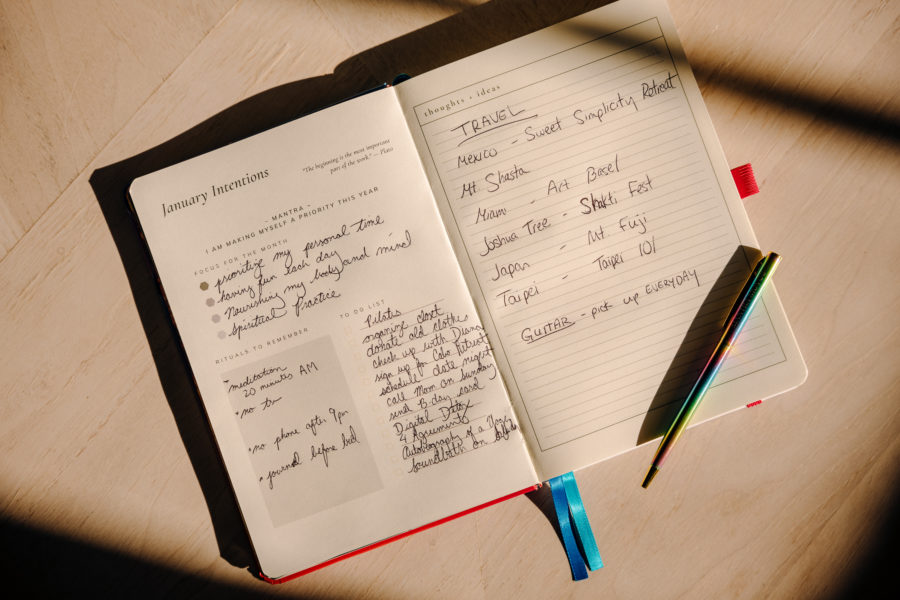 January Intentions
"The beginning is the most important
part of the work." — Plato
~ MANTRA ~
I AM MAKING MYSELF A PRIORITY THIS YEAR
FOCUS FOR THE MONTH
prioritize my personal time
having fun each day
Nourishing my body and mind
Spiritual Practice
RITUALS TO REMEMBER
meditation
20 minutes AM
• no
• no phone after 9pm
• journal before bed
TO DO LIST
Pilates
organize closet
donate old clothes
check up with Diana
sign up for Cabo Retreat
schedule date night
call Mom on Sunday
send B-day card
Digital Detox
4 Agreements
Autobiography of a Yogi
Soundbath on
thoughts + ideas
TRAVEL
Mexico - Sweet Simplicity Retreat
Mt Shasta
Miami - Art Basel
Joshua Tree - Shakti Fest
Japan - Mt. Fuji
Taipei - Taipei 101
GUITAR - pick up EVERYDAY